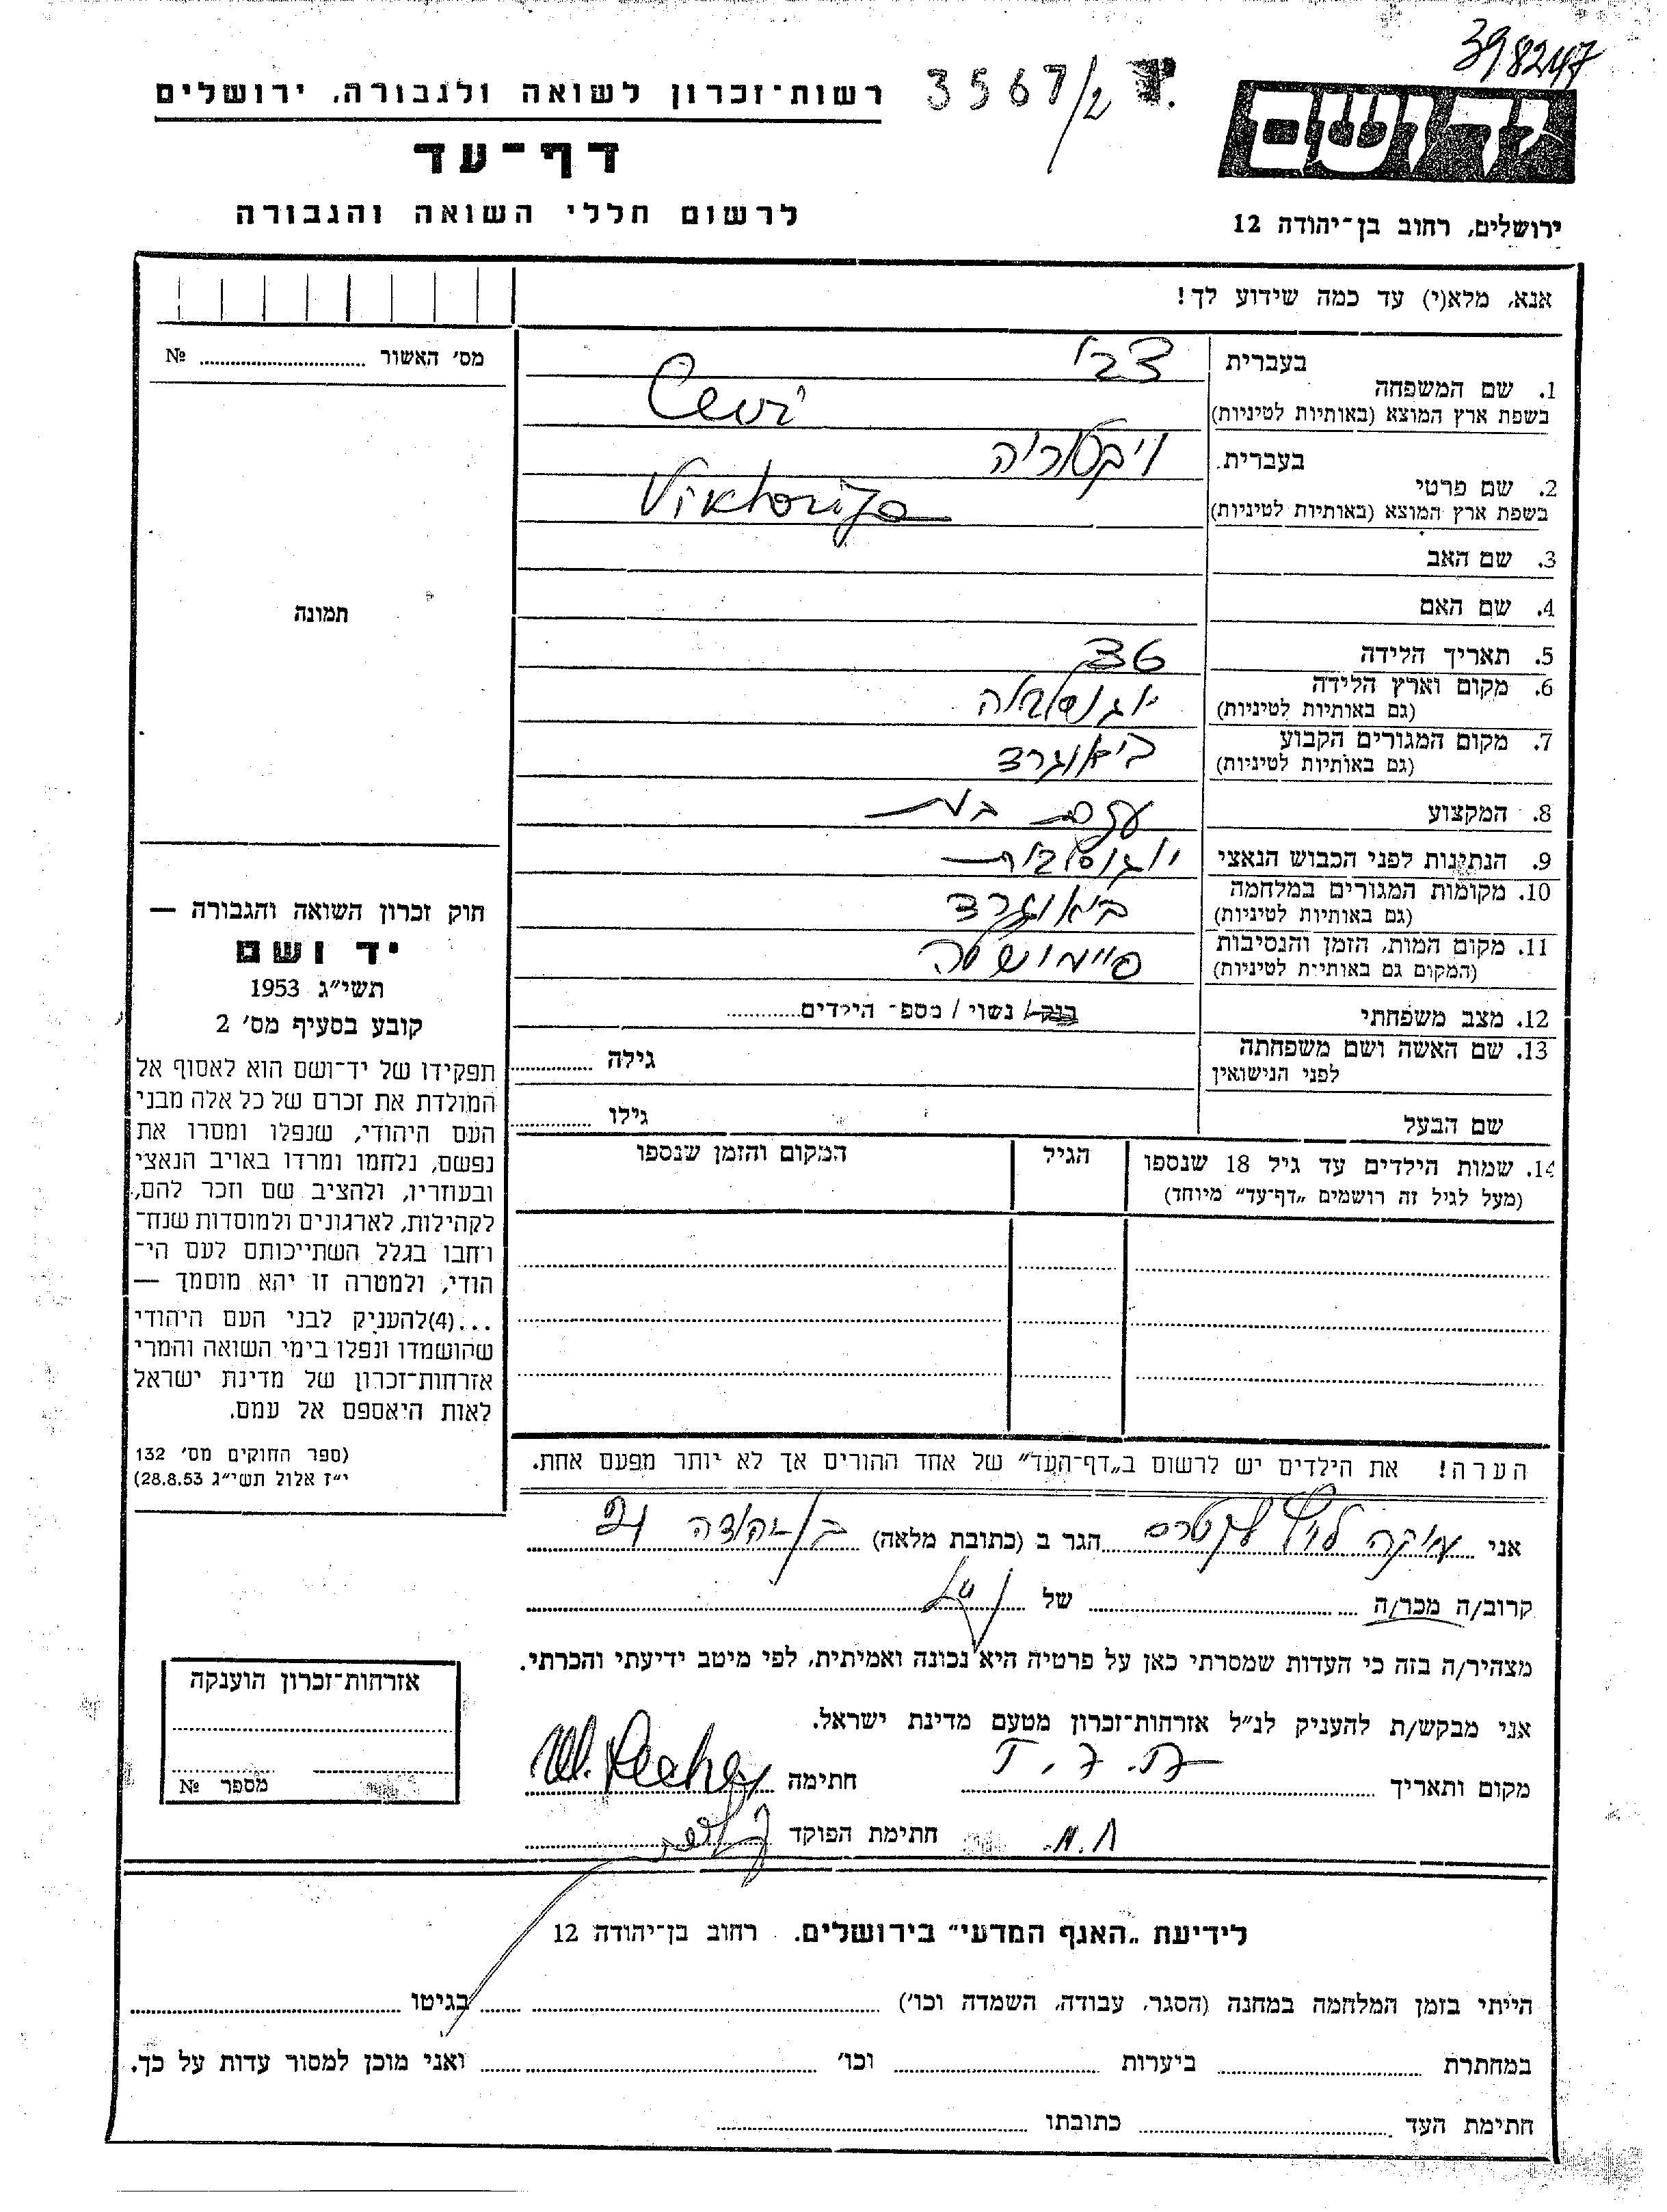 398247
רשות־זכרון לשואה ולגבורה, ירושלים
3567/2
יד ושם
דף־עד
לרשום חללי השואה והגבורה
ירושלים, רחוב בן־יהודה 12
אנא, מלא(י) עד כמה שידוע לך!
מס׳ האשור № 
בעברית צבי
1. שם המשפחה
בשפת ארץ המוצא (באותיות לטיניות) Cevi
בעברית ויקטוריה
2. שם פרטי
בשפת ארץ המוצא (באותיות לטיניות) Viktorija
3. שם האב
4. שם האם
תמונה
5. תאריך הלידה 36
6. מקום וארץ הלידה יוגוסלביה
(גם באותיות לטיניות)
7. מקום המגורים הקבוע ביאוגרד
(גם באותיות לטיניות)
8. המקצוע עקרת בית
9. הנתינות לפני הכבוש הנאצי יוגוסלבית
10. מקומות המגורים במלחמה ביאוגרד
(גם באותיות לטיניות)
11. מקום המות, הזמן והנסיבות סיימושטה
(המקום גם באותיות לטיניות)
12. מצב משפחתי רווק/ נשוי / מספ־ הילדים
13. שם האשה ושם משפחתה גילה
לפני הנישואין
שם הבעל גילו
14. שמות הילדים עד גיל 18 שנספו הגיל המקום והזמן שנספו
(מעל לגיל זה רושמים „דף־עד״ מיוחד)
חוק זכרון השואה והגבורה —
יד ושם
תשי״ג 1953
קובע בסעיף מס׳ 2
תפקידו של יד־ושם הוא לאסוף אל
המולדת את זכרם של כל אלה מבני
העם היהודי, שנפלו ומסרו את
נפשם, נלחמו ומרדו באויב הנאצי
ובעוזריו, ולהציב שם וזכר להם,
לקהילות, לארגונים ולמוסדות שנח־
רבו בגלל השתייכותם לעם הי־
הודי, ולמטרה זו יהא מוסמך —
...(4)להעניק לבני העם היהודי
שהושמדו ונפלו בימי השואה והמרי
אזרחות־זכרון של מדינת ישראל
לאות היאספם אל עמם.
(ספר החוקים מס׳ 132
י״ז אלול תשי״ג 28.8.53)
הערה! את הילדים יש לרשום ב„דף־העד״ של אחד ההורים אך לא יותר מפעם אחת.
אני הגר ב (כתובת מלאה) בן יהודה
קרוב/ה מכר/ה של
מצהיר/ה בזה כי העדות שמסרתי כאן על פרטיה היא נכונה ואמיתית, לפי מיטב ידיעתי והכרתי.
אני מבקש/ת להעניק לנ״ל אזרחות־זכרון מטעם מדינת ישראל.
מקום ותאריך חתימה
חתימת הפוקד
אזרחות־זכרון הוענקה
מספר №
לידיעת „האגף המדעי״ בירושלים. רחוב בן־יהודה 12
הייתי בזמן המלחמה במחנה (הסגר, עבודה, השמדה וכו׳) בגיטו
במחתרת ביערות וכו׳ ואני מוכן למסור עדות על כך.
חתימת העד כתובתו